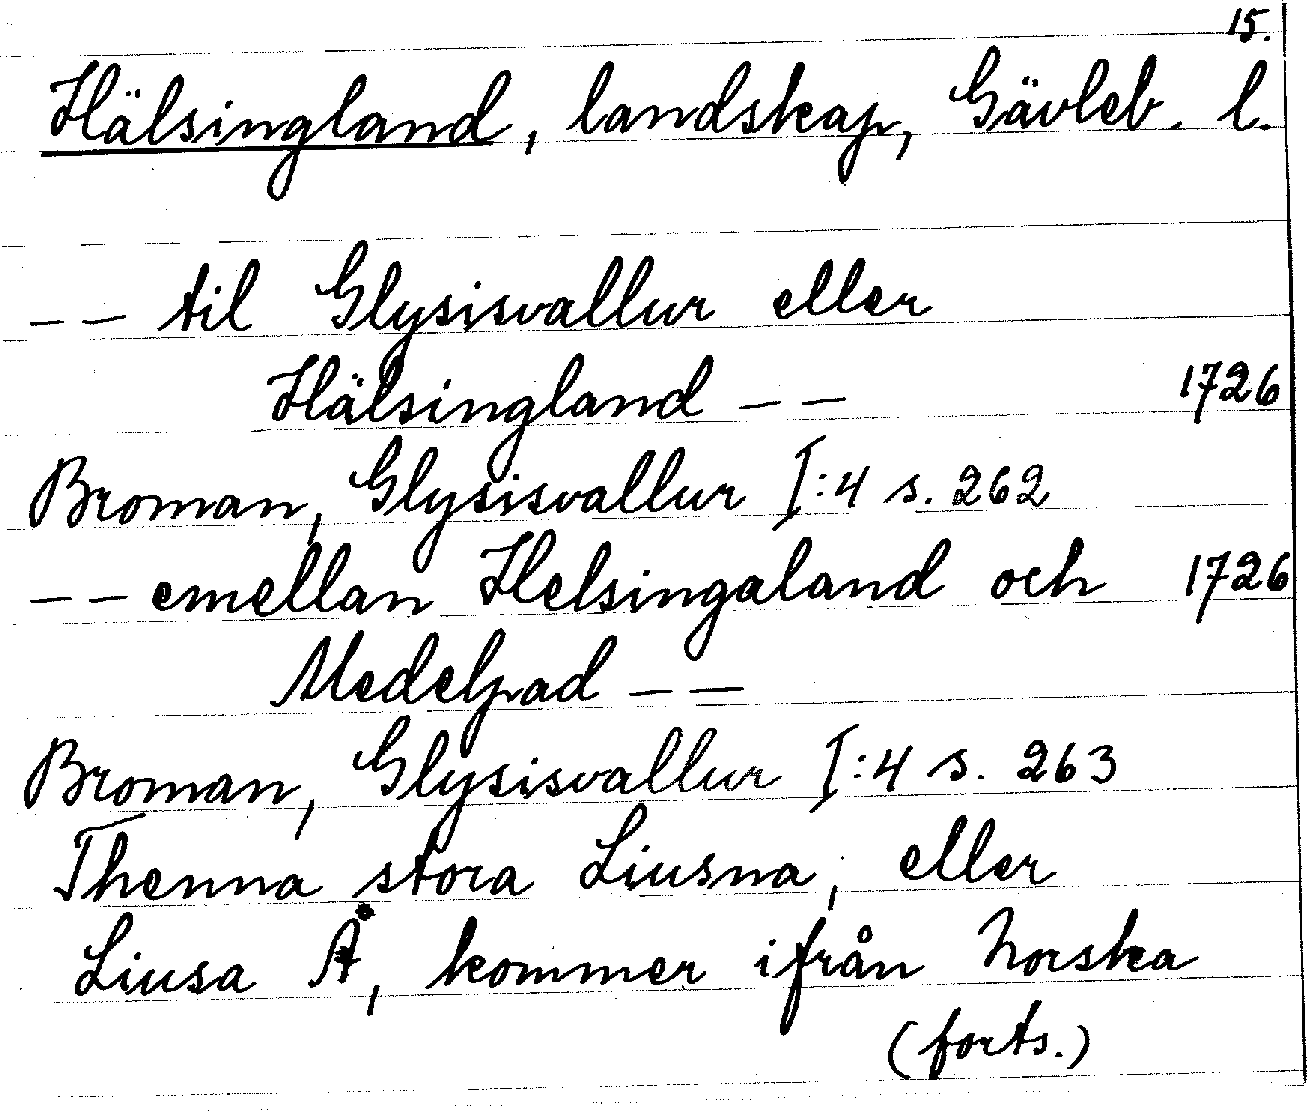 15.
Hälsingland, landskap, Gävleb. l.
-- til Glysisvallur eller
Hälsingland -- 1726
Broman, Glysisvallur I:4 s. 262
-- emellan Helsingaland och 1726
Medelpad --
Broman, Glysisvallur I:4 s. 263
Thenna stora Liusna, eller
Liusa Å, kommer ifrån Norska
(forts.)